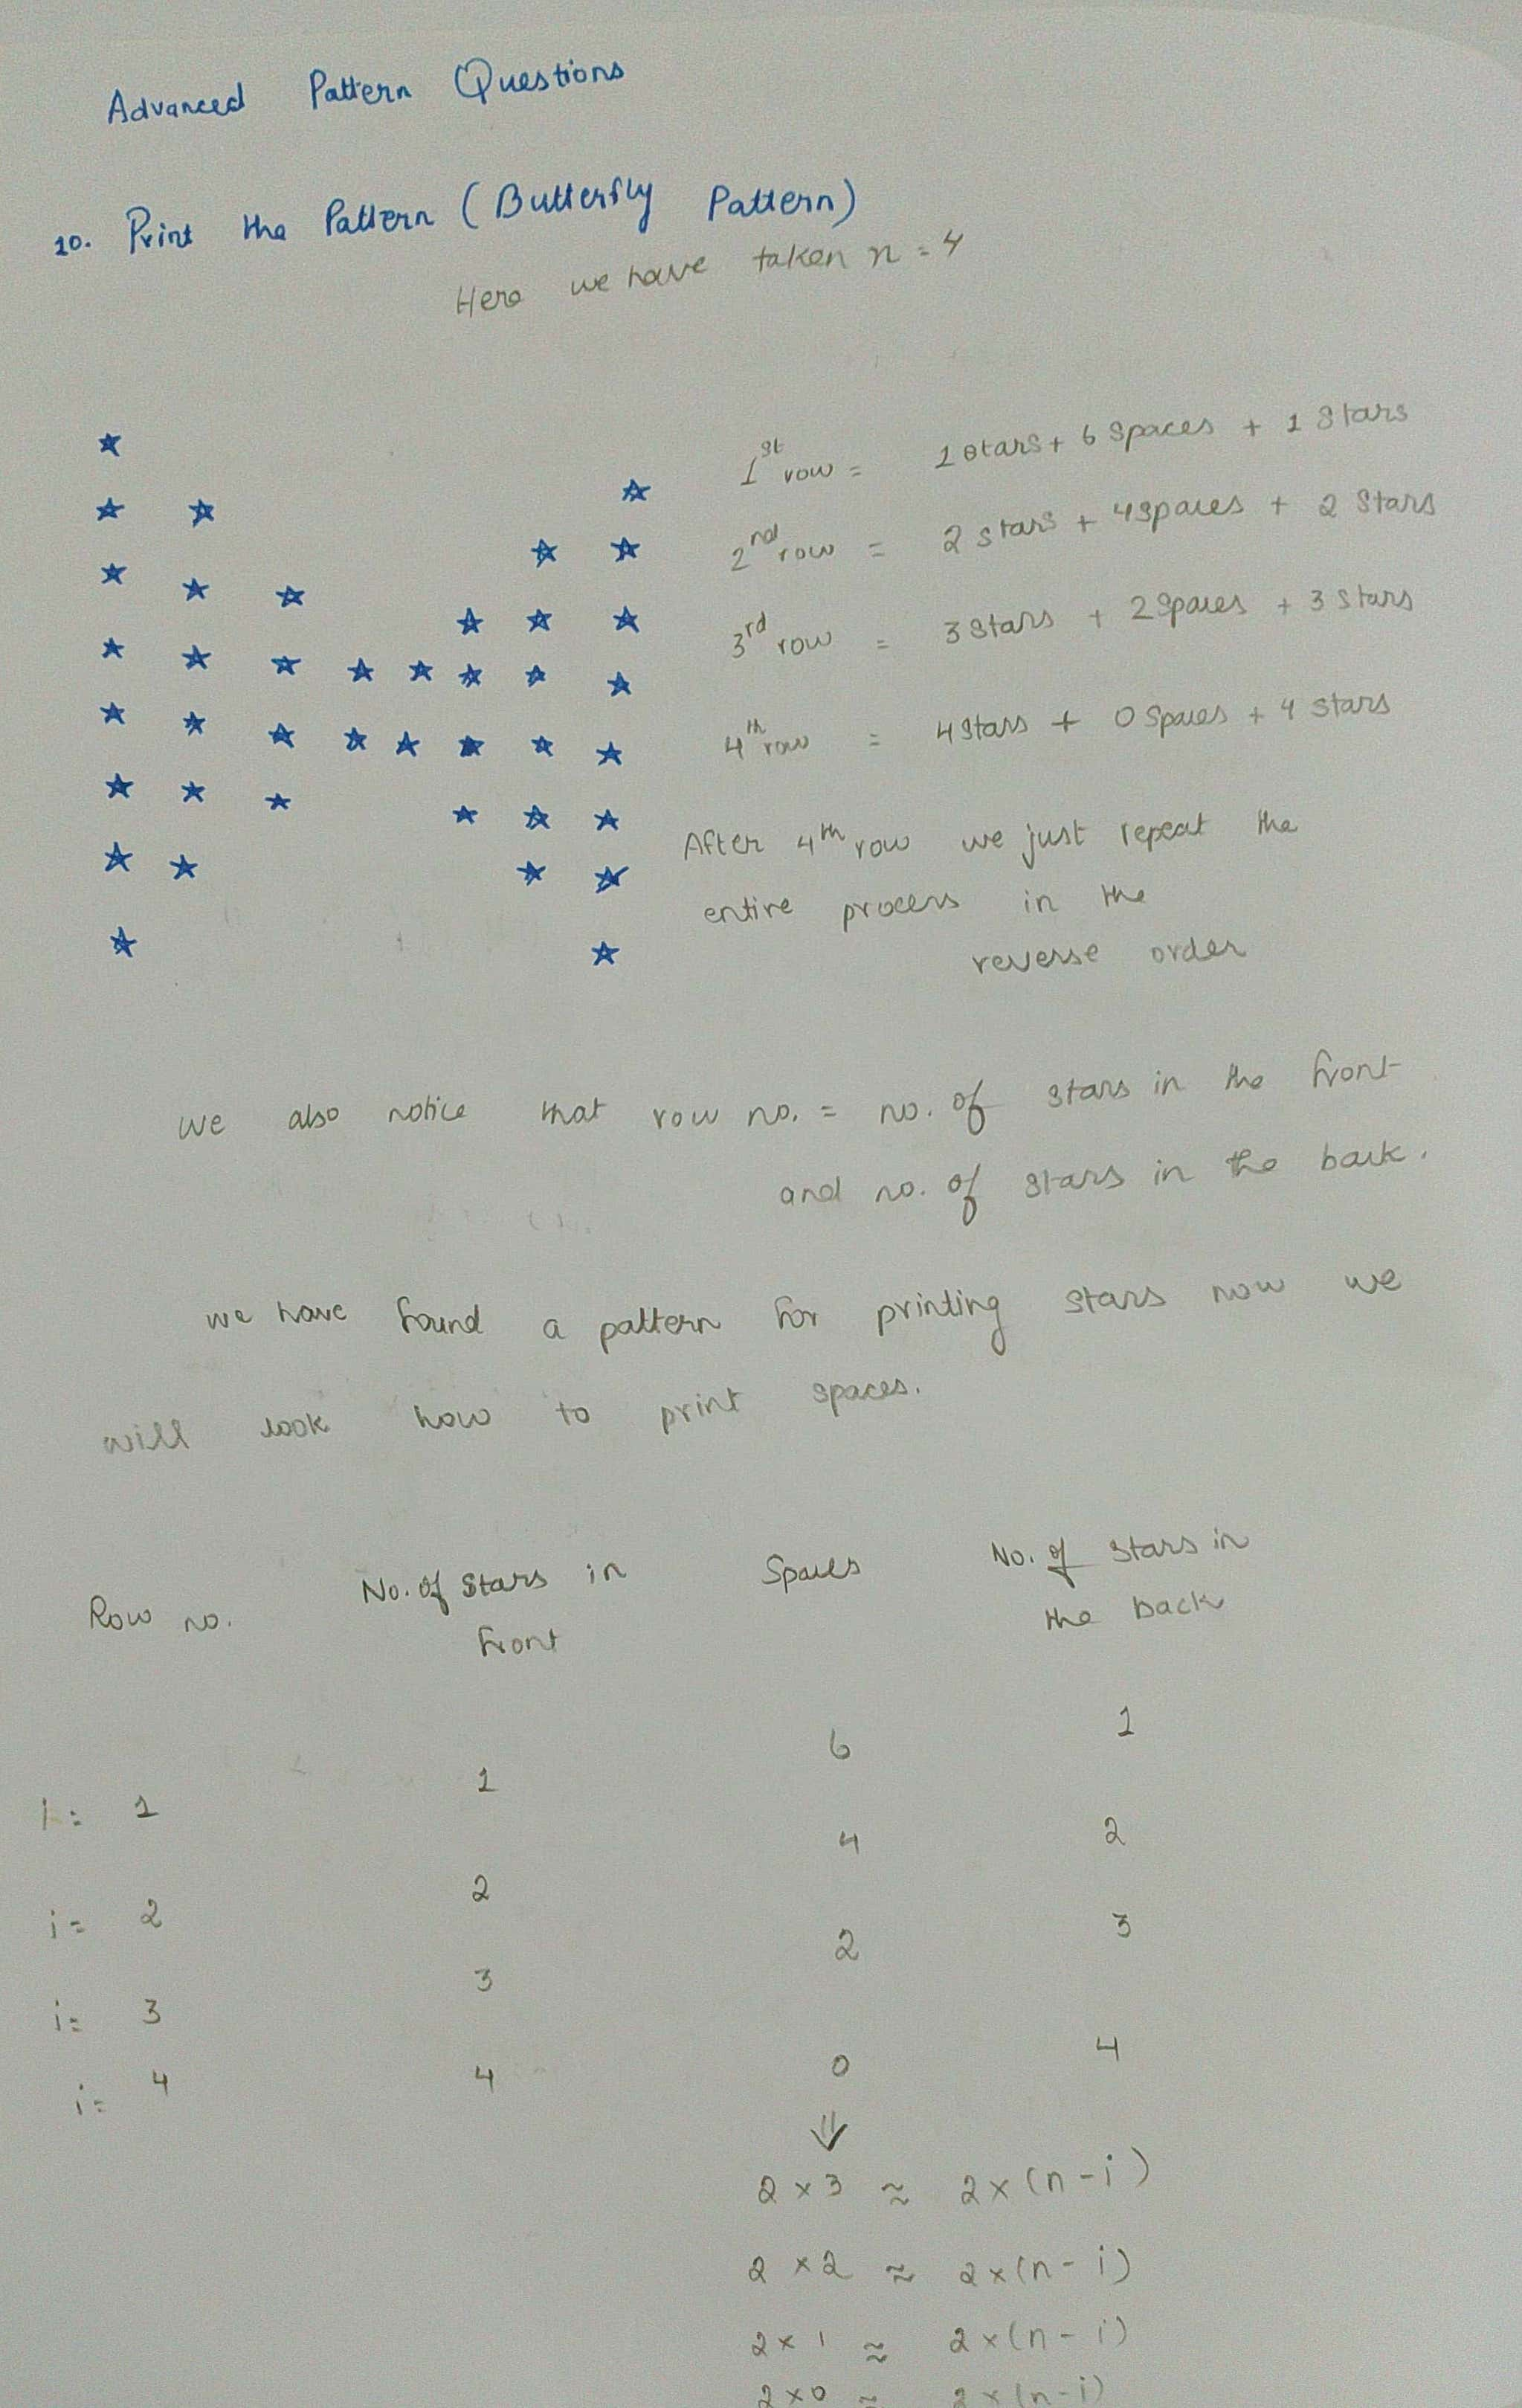 Advanced Pattern Questions
10. Print the Pattern (Butterfly Pattern)
Here we have taken n = 4
1st row = 1 stars + 6 spaces + 1 stars
2nd row = 2 stars + 4 spaces + 2 stars
3rd row = 3 stars + 2 spaces + 3 stars
4th row = 4 stars + 0 spaces + 4 stars
After 4th row we just repeat the
entire process in the
reverse order
we also notice that row no. = no. of stars in the front
and no. of stars in the back.
we have found a pattern for printing stars now we
will look how to print spaces.
Row no. No. of stars in front Spaces No. of stars in the back
i = 1 1 6 1
i = 2 2 4 2
i = 3 3 2 3
i = 4 4 0 4
2 × 3 ≈ 2 × (n - i)
2 × 2 ≈ 2 × (n - i)
2 × 1 ≈ 2 × (n - i)
2 × 0 ≈ 2 × (n - i)